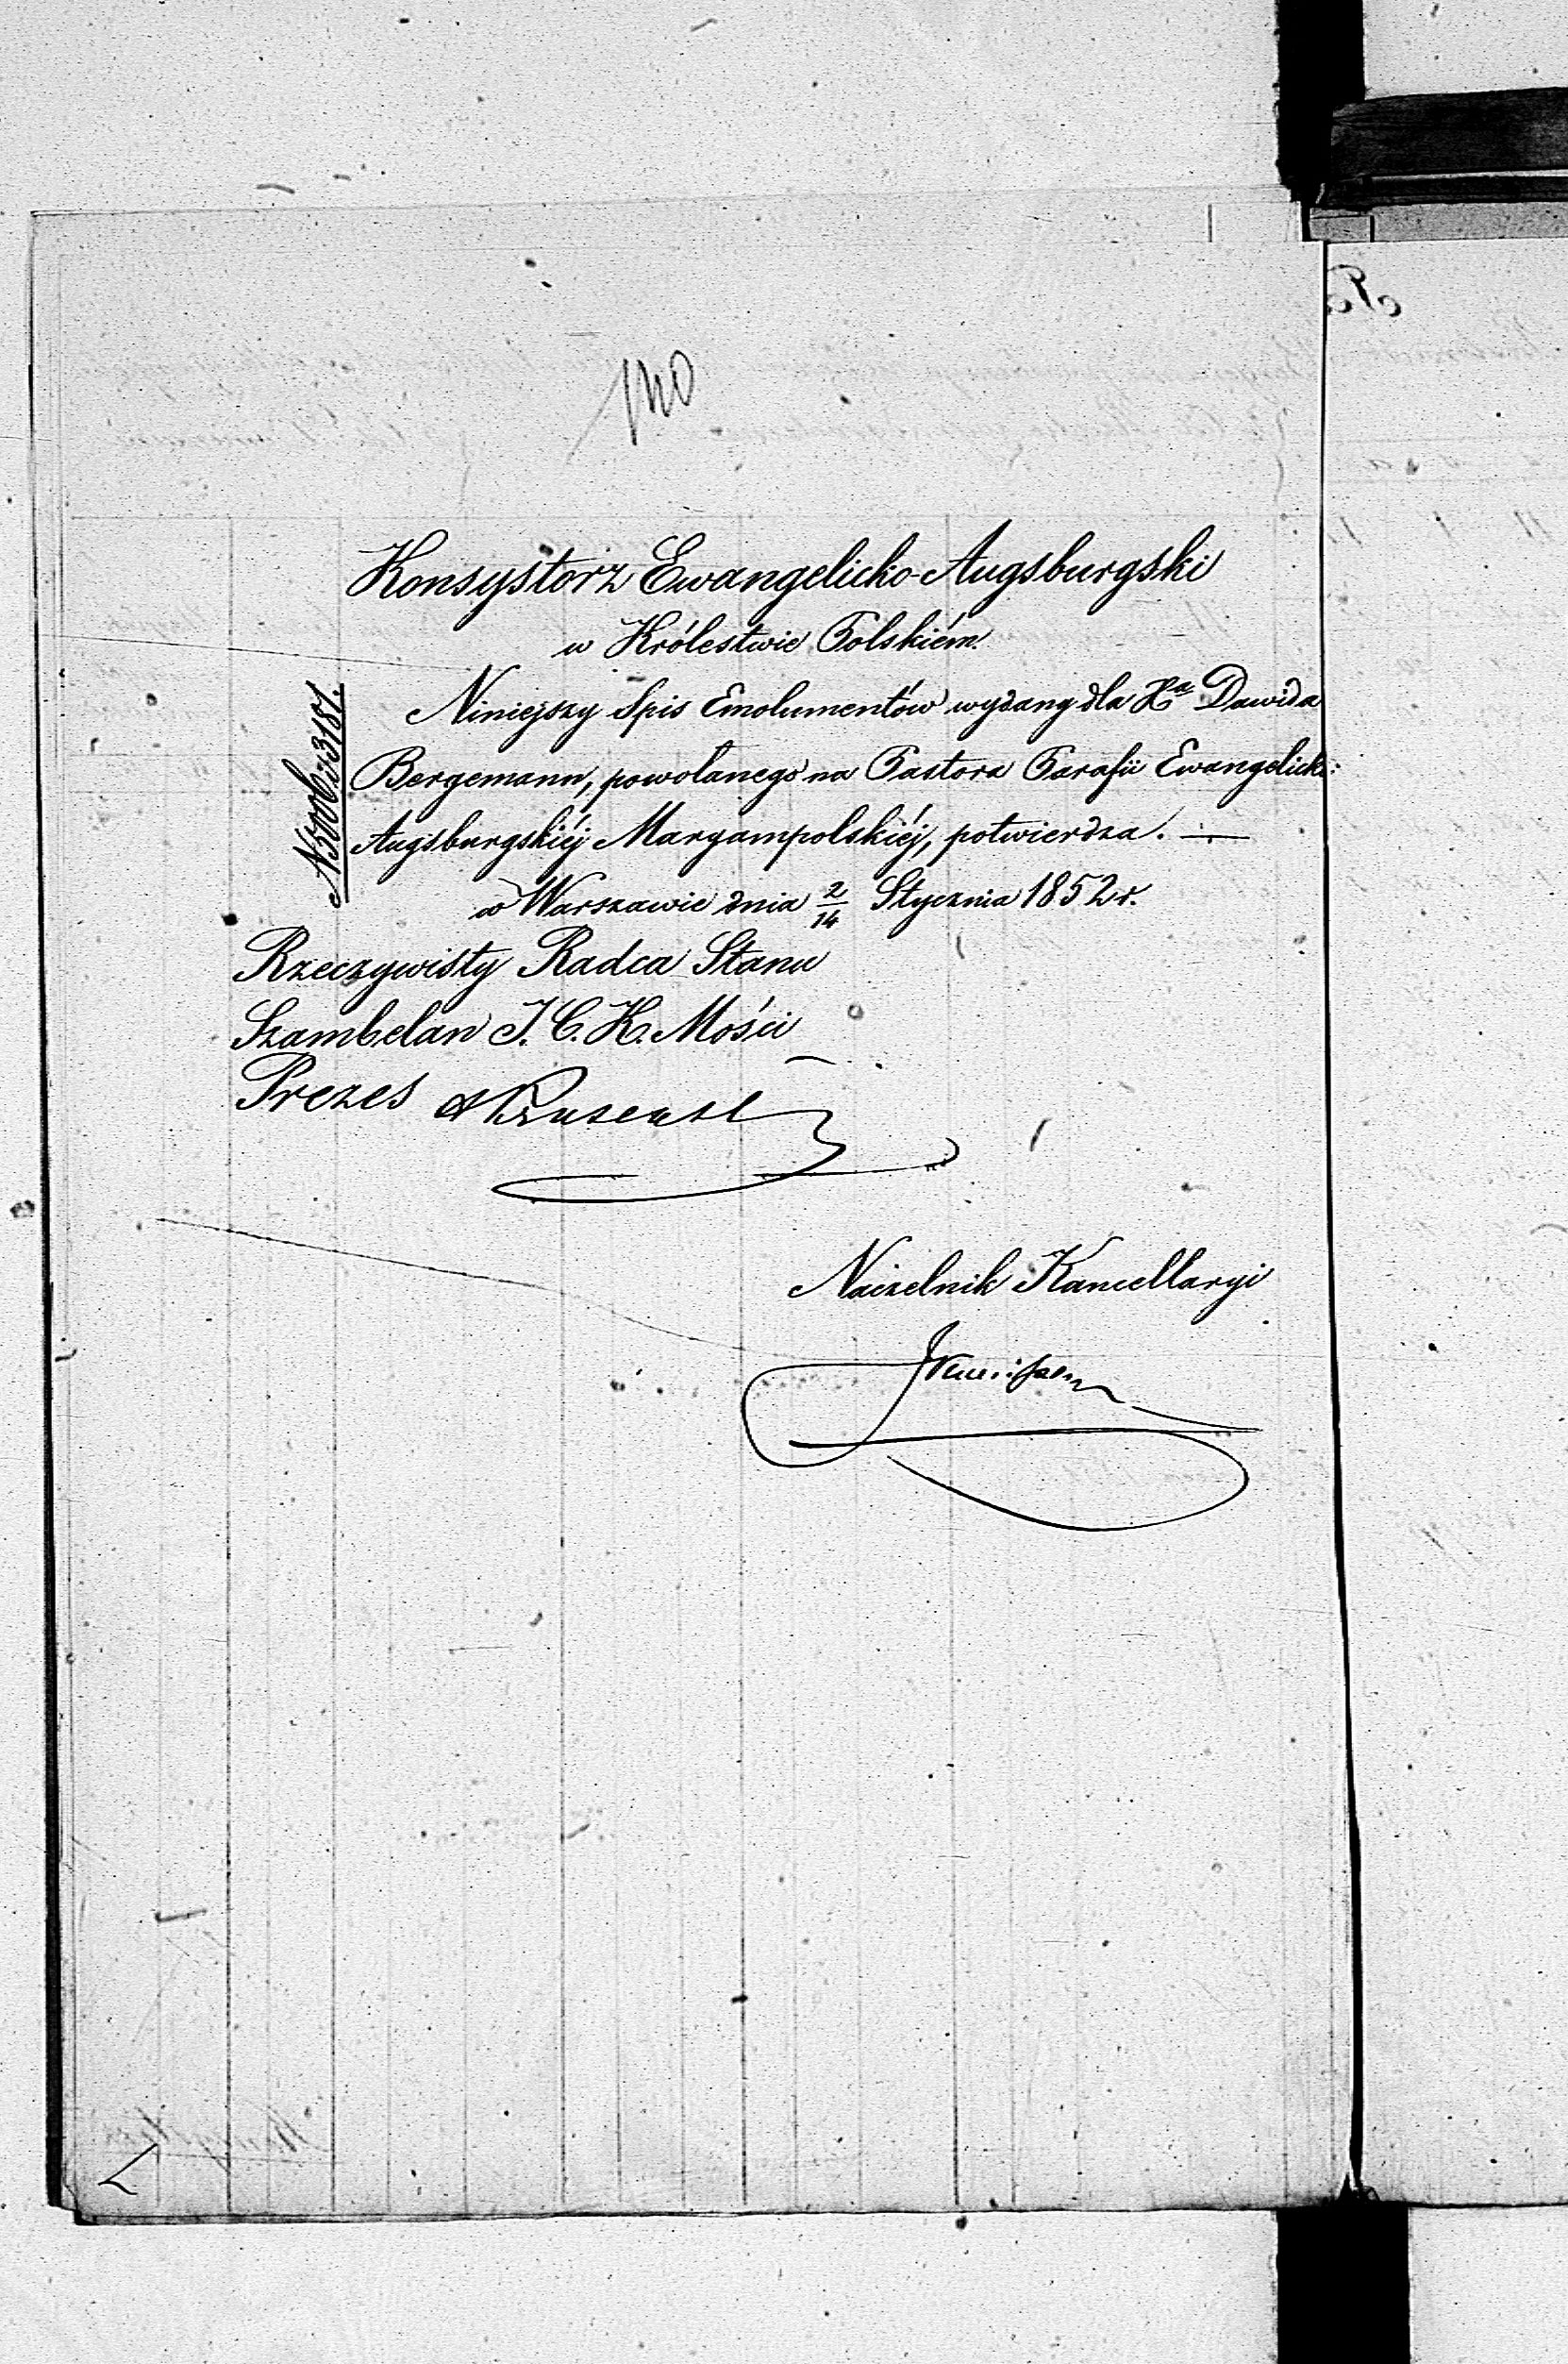 140
Konsystorz Ewangelicko-Augsburgski
w Królestwie Polskiém.
Niniejszy Spis Emolumentów wydany dla Xa Dawida
Bergemann, powołanego na Pastora Parafii Ewangelicko:
Augsburgskiéj Maryampolskiéj, potwierdza. —
w Warszawie dnia 2/14 Stycznia 1852 r.
Rzeczywisty Radca Stanu
Szambelan J. C. K. Mości
Prezes
Naczelnik Kancellaryi